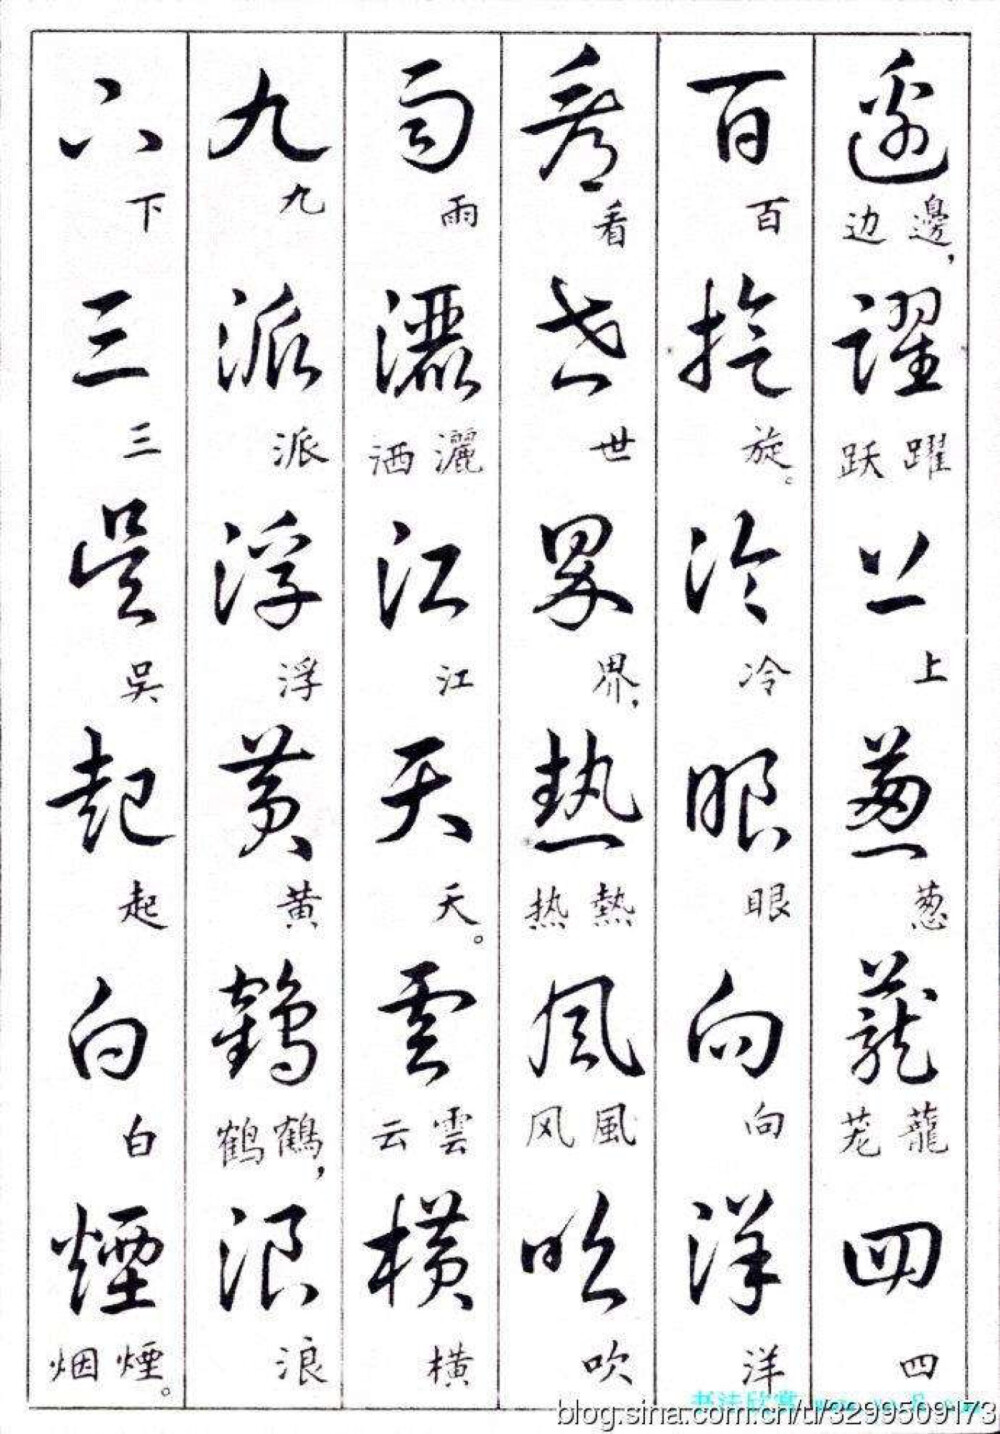 邊 边邊，
躍 跃躍
上 上
葱 葱
蘢 茏蘢
四 四
百 百
旋 旋。
冷 冷
眼 眼
向 向
洋 洋
看 看
世 世
界 界，
熱 热熱
風 风風
吹 吹
雨 雨
灑 洒灑
江 江
天 天。
雲 云雲
橫 橫
九 九
派 派
浮 浮
黄 黄
鶴 鹤鶴，
浪 浪
下 下
三 三
吴 吳
起 起
白 白
煙 烟煙。
blog.sina.com.cn/u/3299509173